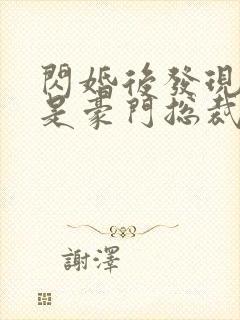 閃婚後發現
是豪門總裁
謝澤